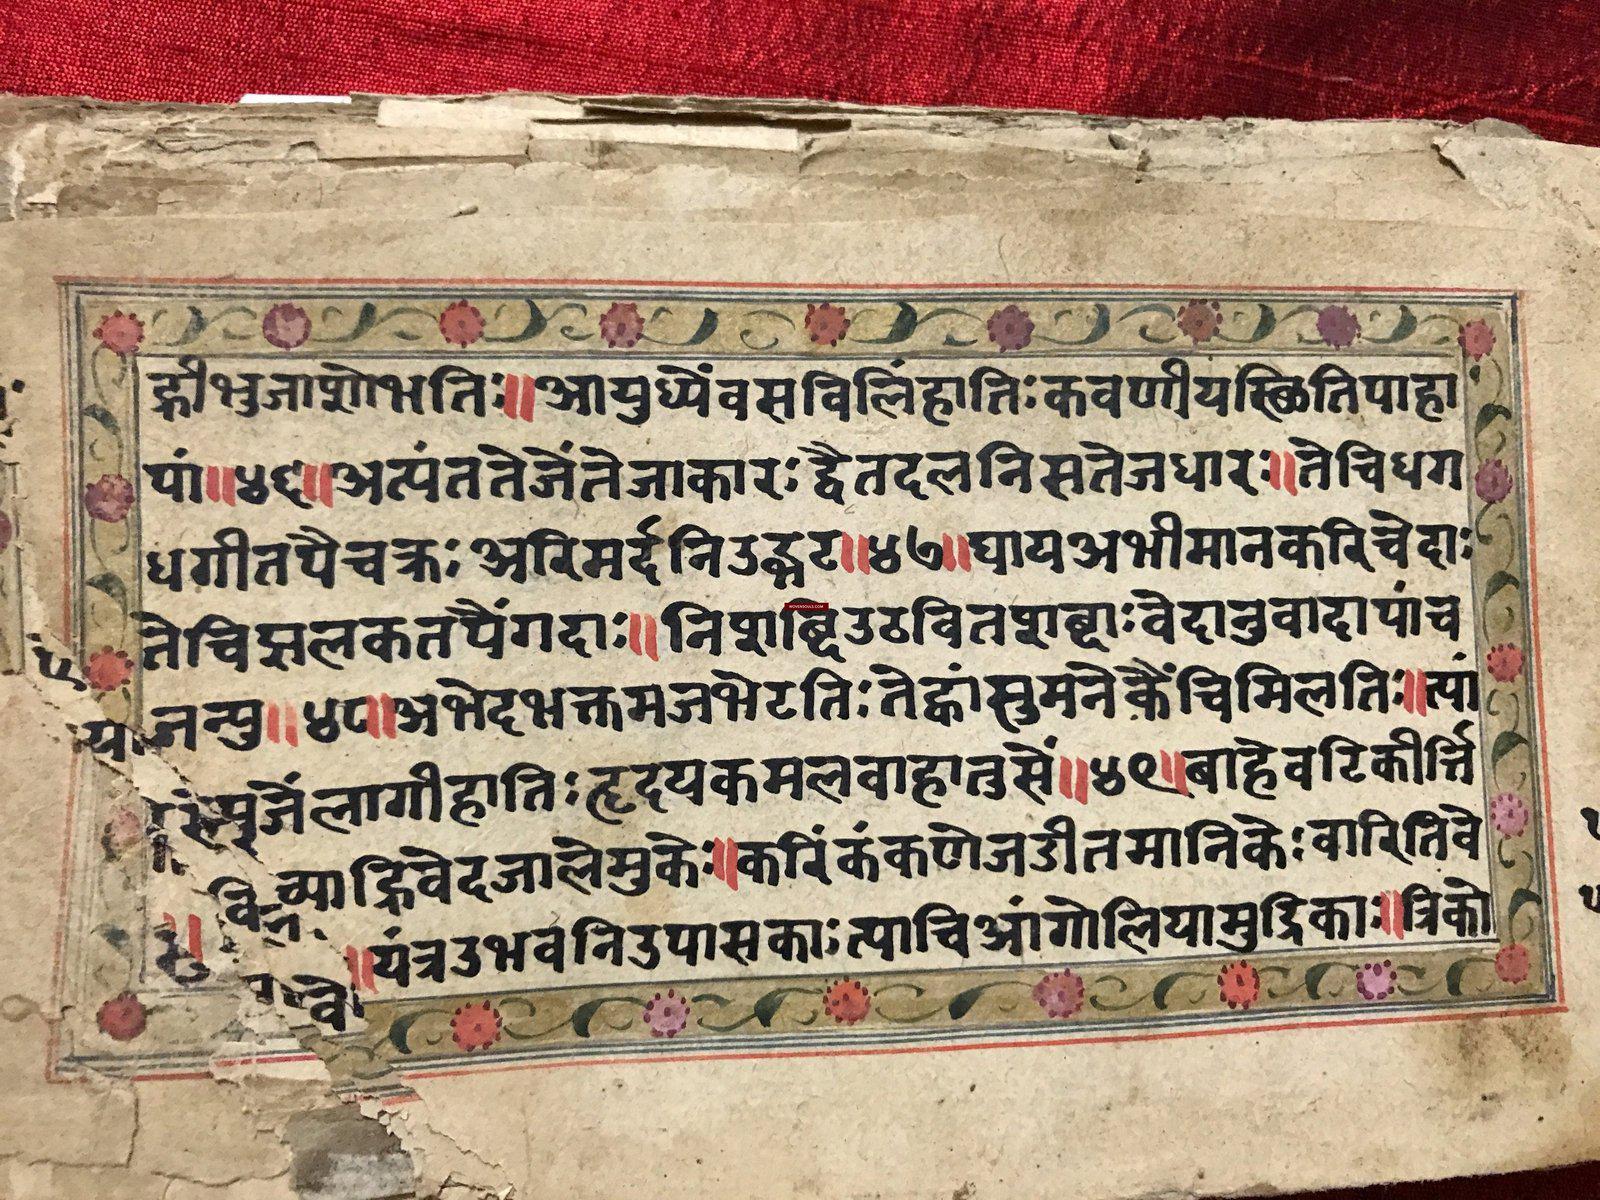 ह्कीभुजाशोभति: ॥ आयुध्यैंवसविलिंहाति: कवणीयस्छितिपाहा
पां ॥ ४६ ॥ अत्पंततेजैंतेजाकार: द्वैतदलनिसतेजधार: ॥ तेचिधग
धगीतपैचक्र: अरिमर्दनिउद्भट ॥ ४७ ॥ घायअभीमानकरिचेदा:
तेचिझलकतपैंगदा: ॥ निशब्दिउठवितशब्दा: वेदानुवादापांच
यानन्पु ॥ ४८ ॥ अभेदभक्तमजभेटति: तेह्कांसुमनेकैंचिमिलति: ॥ त्पां
जैंलागीहाति: हृदयकमलवाहातुसें ॥ ४९ ॥ बाहेवटिकीर्त्ति
च्पाह्किवेदजालेमुके: ॥ करिंकंकणेजडीतमानिके: वारितिवे
॥ यंत्रउभवनिउपासका: त्पाचिआंगोलियामुद्रिका: ॥ त्रिको
WOVENSOULS.COM